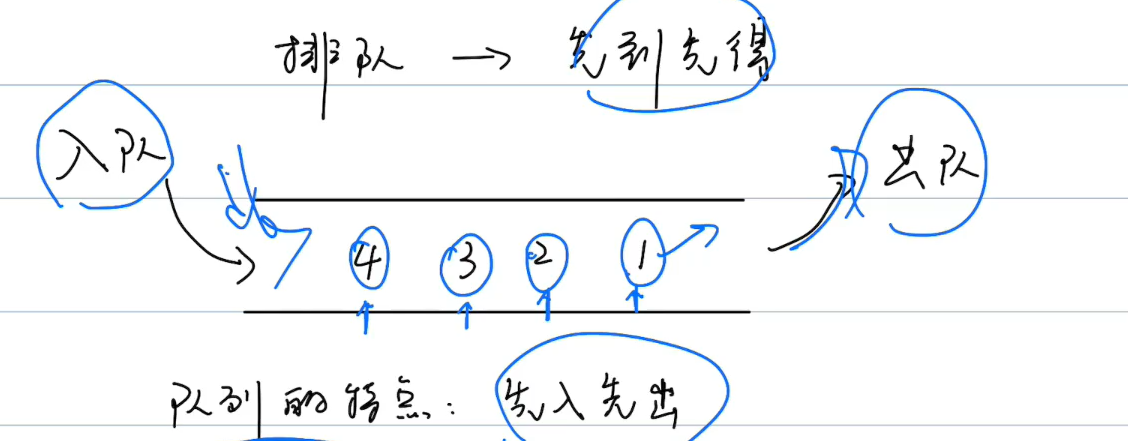 排队 → 先到先得
入队
出队
4 3 2 1
队列的特点：先入先出